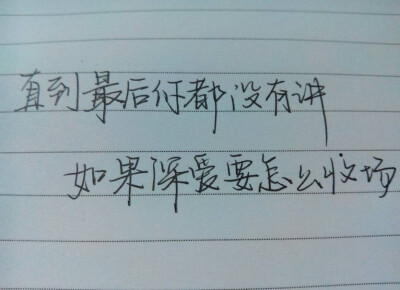 直到最后你都没有讲
如果深爱要怎么收场